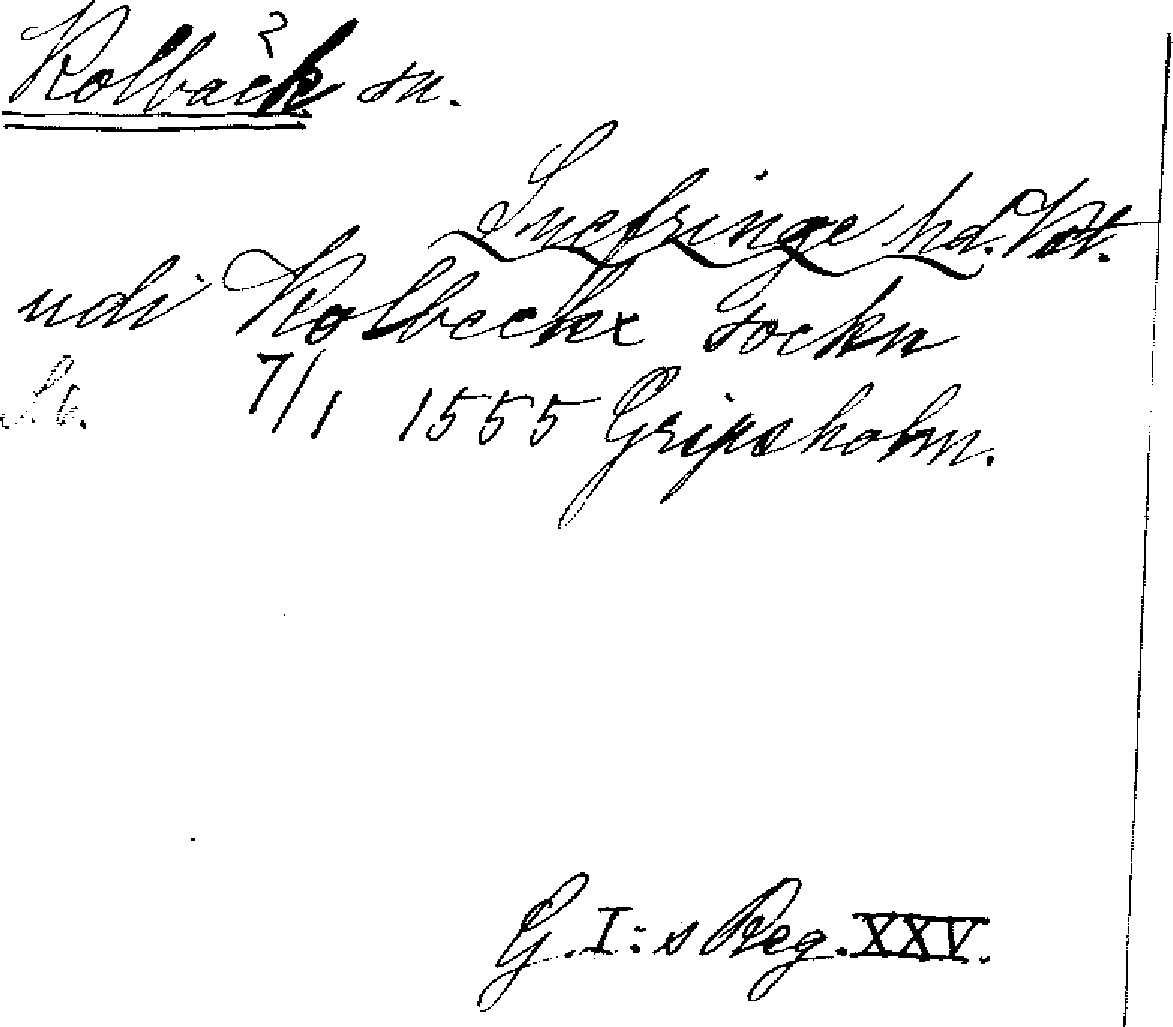 Kolbäck sn.
Snefringe hd. Vst.
udi Kolbecke sockn
St. 7/1 1555 Gripsholm.
G. I:s Reg. XXV.